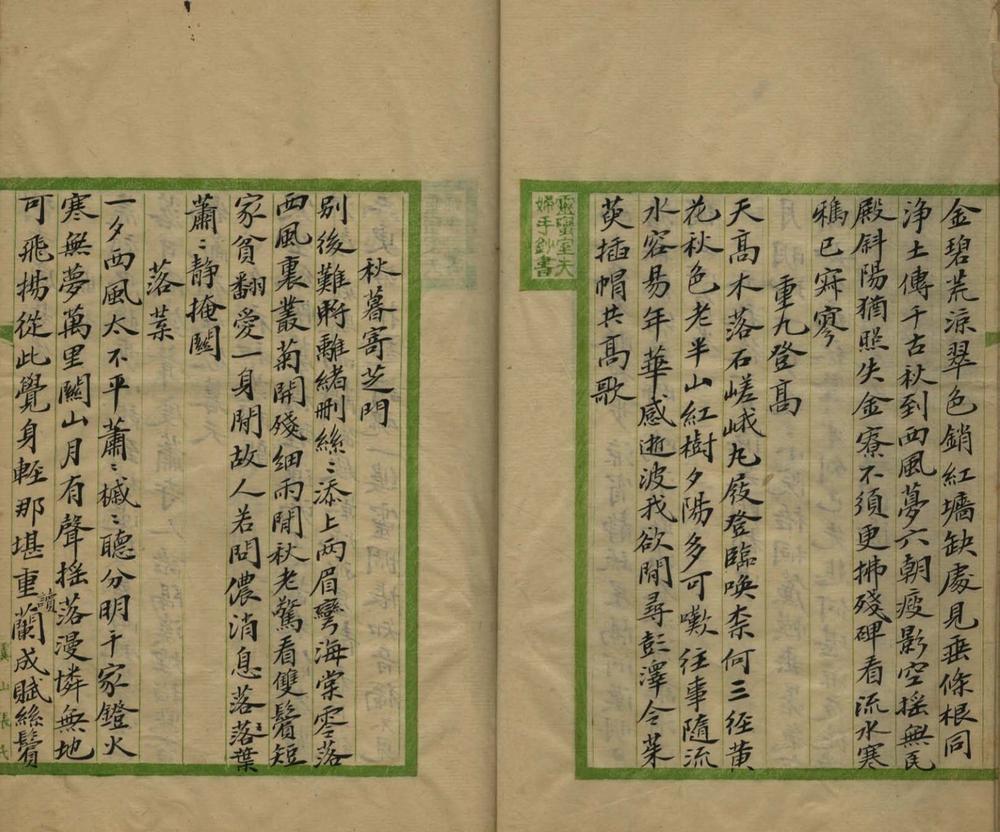 金碧荒涼翠色銷紅墻缺處見垂條根同
浄土傳千古秋到西風夢六朝疲影空摇無民
殿斜陽猶照失金寮不須更拂殘碑看流水寒
鴉已寂寥
重九登高
天高木落石嵯峨九屐登臨喚柰何三徑黄
花秋色老半山紅樹夕陽多可嘆往事隨流
水容易年華感逝波我欲閒尋彭澤令茱
萸插帽共高歌
靈蠻室夫
婦手鈔書
秋暮寄芝門
别後難暫離緒删絲〻添上两眉彎海棠零落
西風裏叢菊開殘細雨間秋老驚看雙鬢短
家貧翻愛一身閒故人若問儂消息落〻落葉
蕭〻靜掩關
落葉
一夕西風太不平蕭〻槭〻聽分明千家鐙火
寒無夢萬里關山月有聲摇落漫憐無地
可飛揚從此覺身輕那堪重讀蘭成賦絲鬢